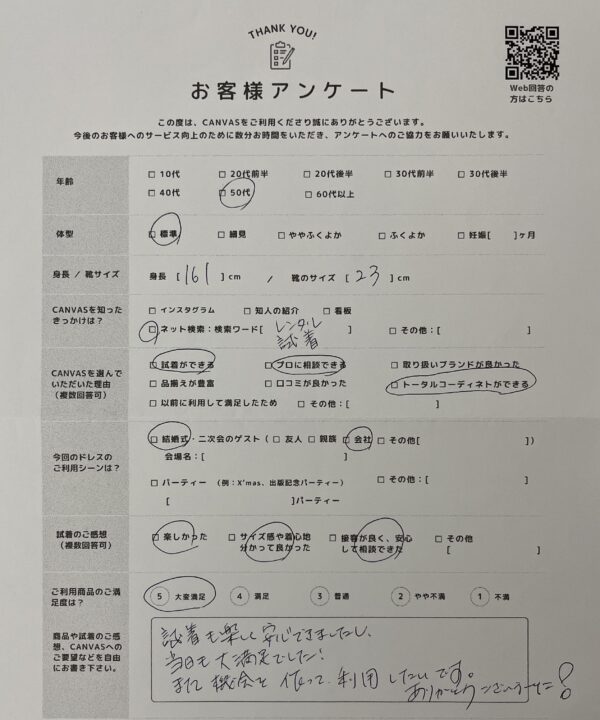 THANK YOU!
お客様アンケート
Web回答の
方はこちら
この度は、CANVASをご利用くださり誠にありがとうございます。
今後のお客様へのサービス向上のために数分お時間をいただき、アンケートへのご協力をお願いいたします。
年齢
□ 10代 □ 20代前半 □ 20代後半 □ 30代前半 □ 30代後半
□ 40代 □ 50代 □ 60代以上
体型
□ 標準 □ 細見 □ ややふくよか □ ふくよか □ 妊娠[ ]ヶ月
身長 / 靴サイズ
身長 [ 161 ] cm / 靴のサイズ [ 23 ] cm
CANVASを知った
きっかけは?
□ インスタグラム □ 知人の紹介 □ 看板
□ ネット検索:検索ワード[ レンタル ] □ その他:[ ]
試着
CANVASを選んで
いただいた理由
(複数回答可)
□ 試着ができる □ プロに相談できる □ 取り扱いブランドが良かった
□ 品揃えが豊富 □ 口コミが良かった □ トータルコーディネトができる
□ 以前に利用して満足したため □ その他:[ ]
今回のドレスの
ご利用シーンは?
□ 結婚式・二次会のゲスト ( □ 友人 □ 親族 □ 会社 □ その他[ ])
会場名:[ ]
□ パーティー (例:X'mas、出版記念パーティー) □ その他:[ ]
[ ]パーティー
試着のご感想
(複数回答可)
□ 楽しかった □ サイズ感や着心地 □ 接客が良く、安心 □ その他
分かって良かった して相談できた [ ]
ご利用商品のご満
足度は?
5 大変満足 4 満足 3 普通 2 やや不満 1 不満
商品や試着のご感
想、CANVASへの
ご要望などを自由
にお書き下さい。
試着も楽しく安心できましたし、
当日も大満足でした!
また機会を作って利用したいです。
ありがとうございました!